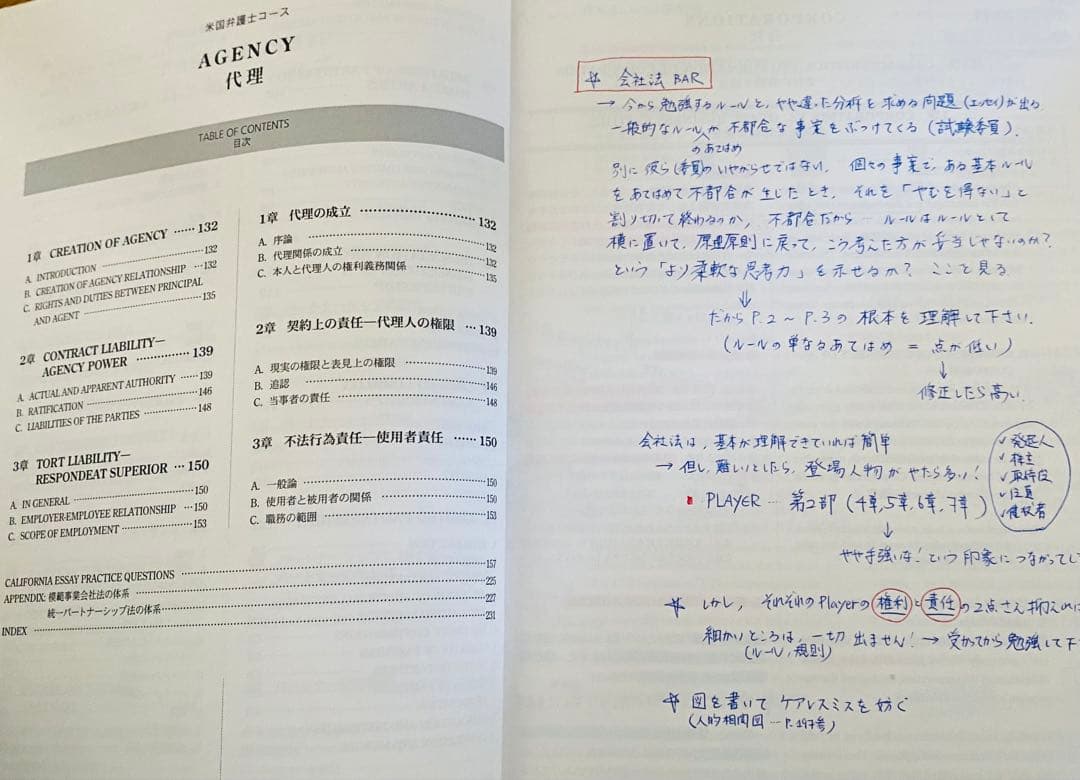 米国弁護士コース
AGENCY
代理
TABLE OF CONTENTS
目次
1章 CREATION OF AGENCY …… 132
A. INTRODUCTION …… 132
B. CREATION OF AGENCY RELATIONSHIP … 132
C. RIGHTS AND DUTIES BETWEEN PRINCIPAL
AND AGENT …… 135
2章 CONTRACT LIABILITY—
AGENCY POWER …… 139
A. ACTUAL AND APPARENT AUTHORITY …… 139
B. RATIFICATION …… 146
C. LIABILITIES OF THE PARTIES …… 148
3章 TORT LIABILITY—
RESPONDEAT SUPERIOR … 150
A. IN GENERAL …… 150
B. EMPLOYER-EMPLOYEE RELATIONSHIP … 150
C. SCOPE OF EMPLOYMENT …… 153
1章 代理の成立 …… 132
A. 序論 …… 132
B. 代理関係の成立 …… 132
C. 本人と代理人の権利義務関係 …… 135
2章 契約上の責任—代理人の権限 … 139
A. 現実の権限と表見上の権限 …… 139
B. 追認 …… 146
C. 当事者の責任 …… 148
3章 不法行為責任—使用者責任 …… 150
A. 一般論 …… 150
B. 使用者と被用者の関係 …… 150
C. 職務の範囲 …… 153
CALIFORNIA ESSAY PRACTICE QUESTIONS …… 157
APPENDIX: 模範事業会社法の体系 …… 225
統一パートナーシップ法の体系 …… 227
INDEX …… 231
会社法 BAR
→ 今から勉強するルールと、やや違った分析を求める問題(エッセイ)が出る
一般的なルールが不都合な事実をぶつけてくる(試験委員).
のあてはめ
別に彼ら(委員)のいやがらせではない. 個々の事案で、ある基本ルール
をあてはめて不都合が生じたとき、それを「やむを得ない」と
割り切って終わるのか、不都合だから…ルールはルールとして
横に置いて、原理原則に戻って、こう考えた方が妥当じゃないのか?
という「より柔軟な思考力」を示せるか? ここを見る
⇓
だから P.2〜P.3の根本を理解して下さい.
(ルールの単なるあてはめ = 点が低い)
↓
修正したら高い.
会社法は、基本が理解できていれば簡単
→ 但し、難しいとしたら、登場人物がやたら多い!
PLAYER … 第2部 (4章,5章,6章,7章)
✓発起人
✓株主
✓取締役
✓役員
✓債権者
↓
やや手強いな!という印象につながってし
しかし、それぞれのPlayerの権利と責任の2点さえ抑えれば
細かいところは、一切出ません! → 受かってから勉強して下
(ルール,規則)
図を書いてケアレスミスを防ぐ
(人的相関図 … P.197参)